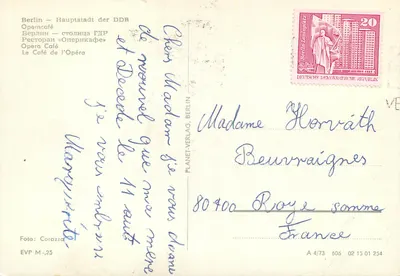 Berlin — Hauptstadt der DDR
Operncafé
Берлин — столица ГДР
Ресторан «Оперкафе»
Opera Café
Le Café de l'Opéra
Cher Madam je vous donne
de nouvel que ma mère
et Decede le 11 août
je vous embrasse
Marguerite
Foto:
EVP M -,25
PLANET-VERLAG, BERLIN
20
Madame Horváth
Beuvraignes
80400 Roye somme
France
A 4/73 806 02 13 01 254